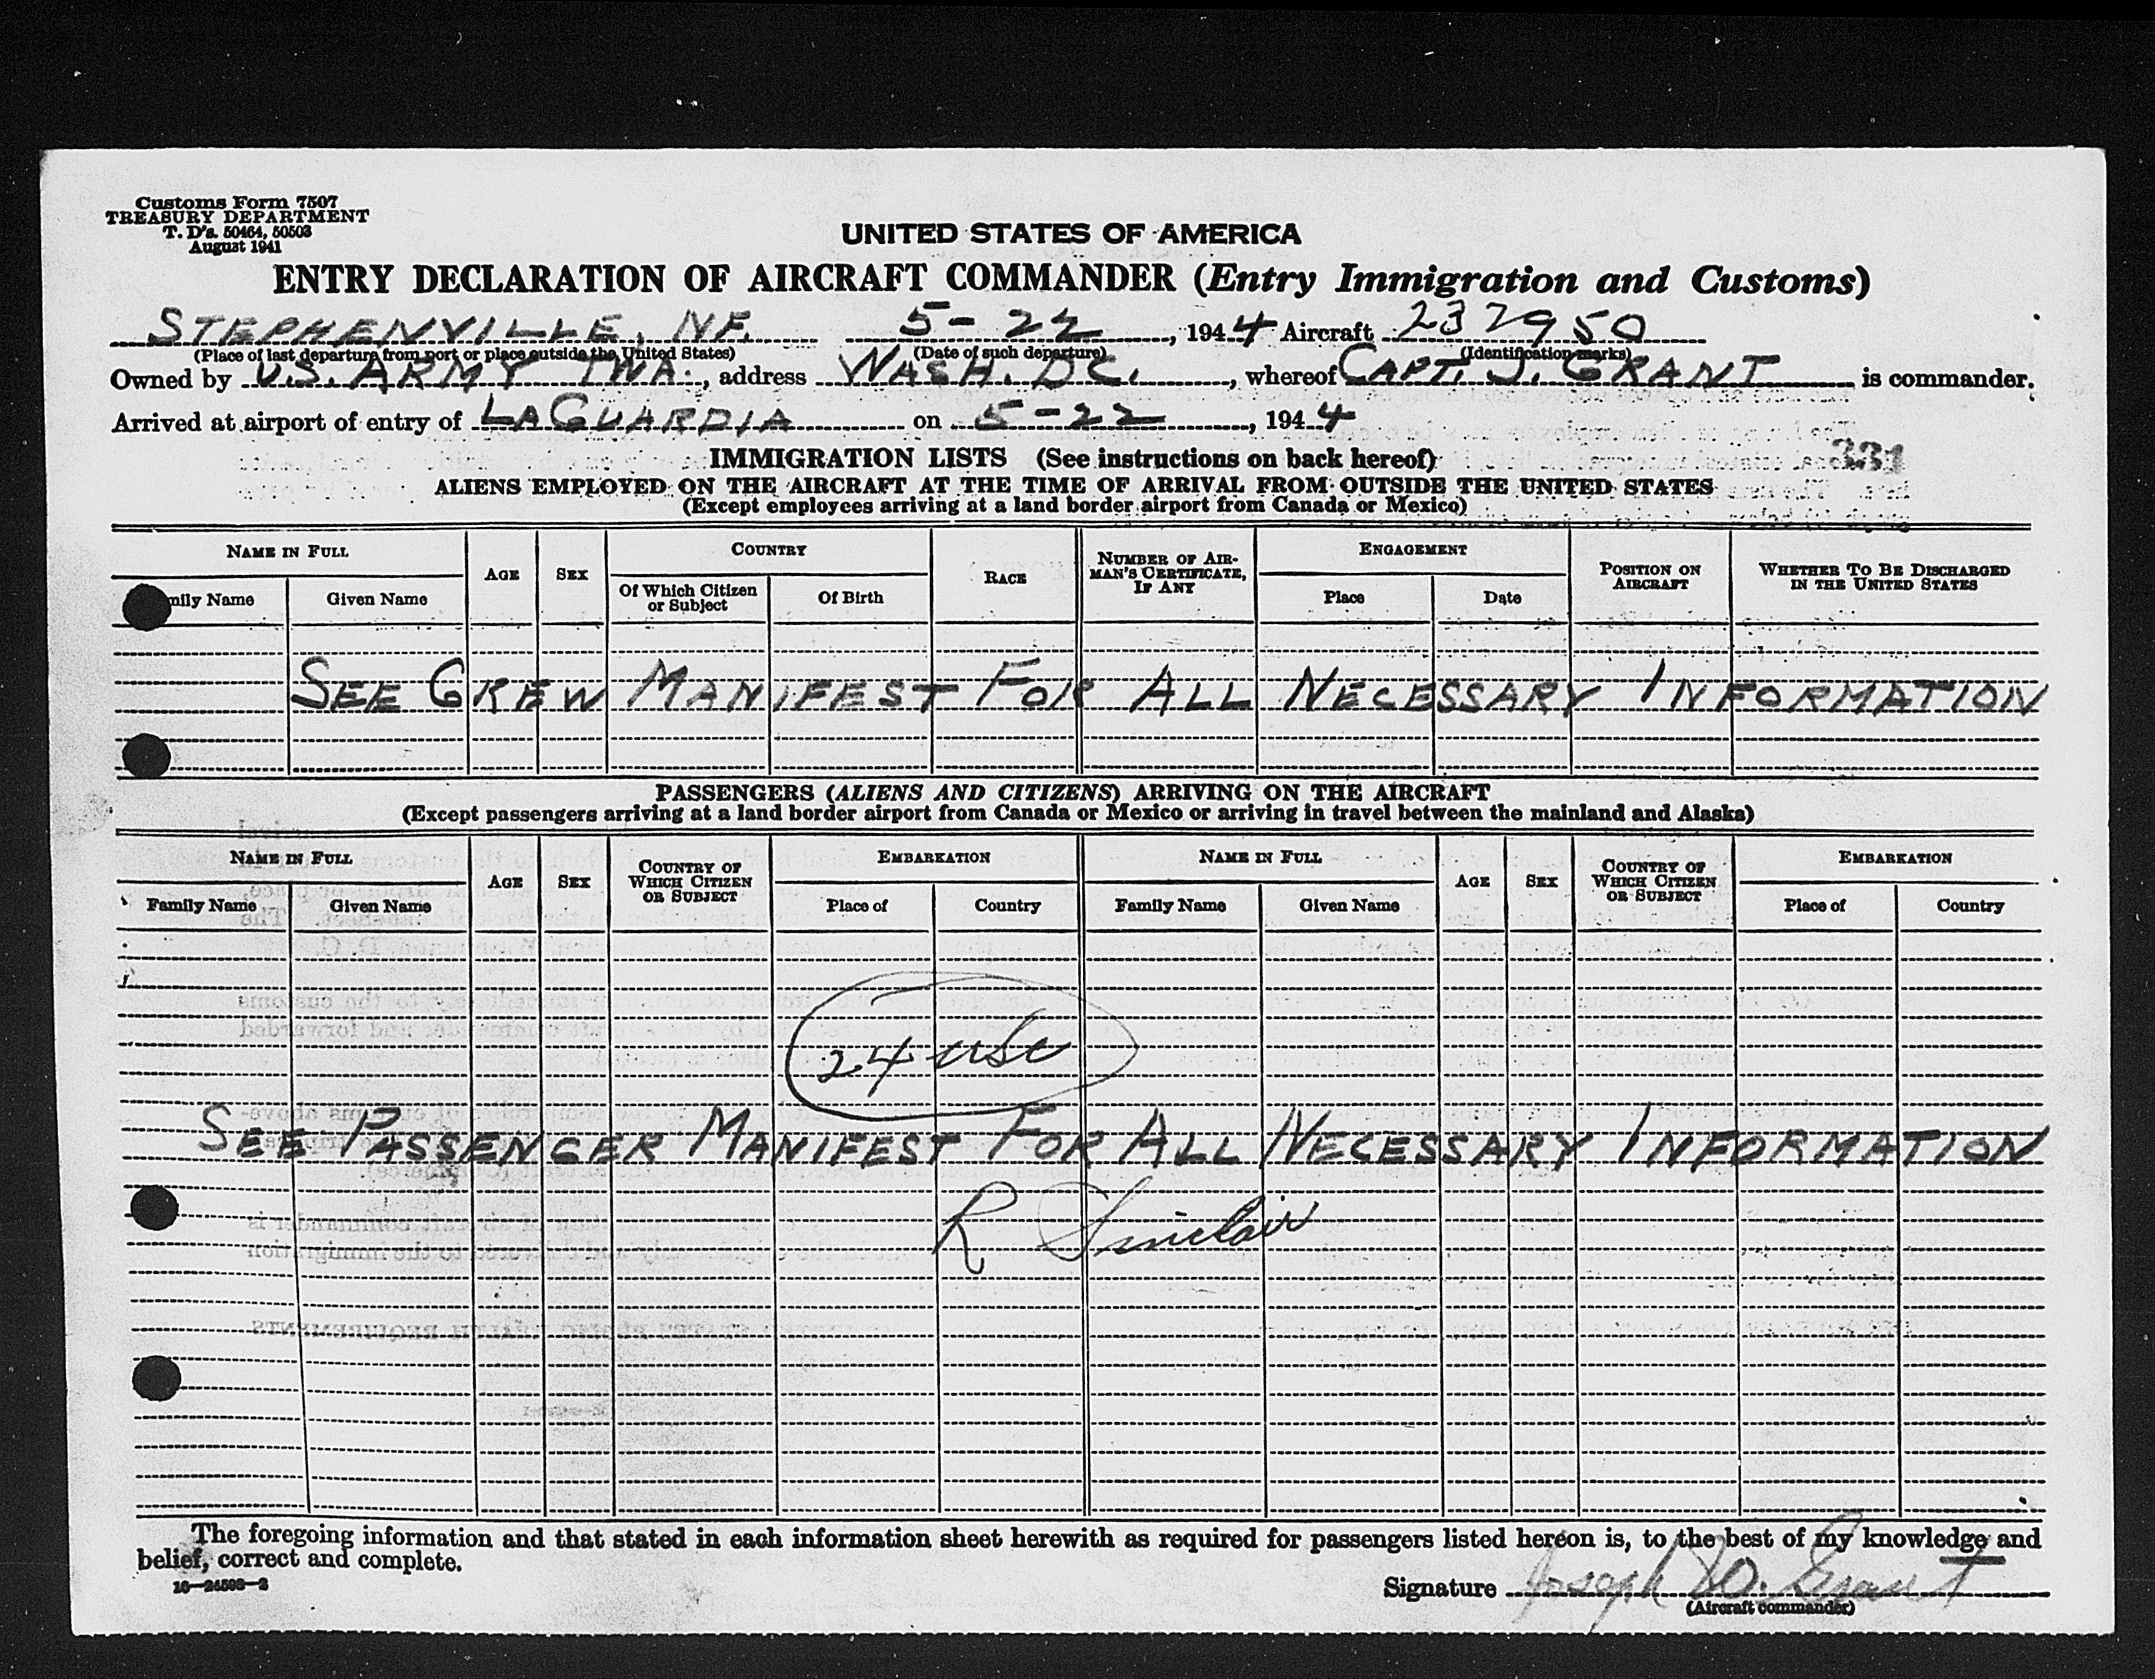 Customs Form 7507
TREASURY DEPARTMENT
T. D's. 50464, 50503
August 1941
UNITED STATES OF AMERICA
ENTRY DECLARATION OF AIRCRAFT COMMANDER (Entry Immigration and Customs)
STEPHENVILLE, NF. 5-22, 1944 Aircraft 237950
(Place of last departure from port or place outside the United States) (Date of such departure) (Identification marks)
Owned by U.S. ARMY TWA., address WASH. DC., whereof CAPT. J. GRANT is commander.
Arrived at airport of entry of LAGUARDIA on 5-22, 1944
331
IMMIGRATION LISTS (See instructions on back hereof)
ALIENS EMPLOYED ON THE AIRCRAFT AT THE TIME OF ARRIVAL FROM OUTSIDE THE UNITED STATES
(Except employees arriving at a land border airport from Canada or Mexico)
NAME IN FULL AGE SEX COUNTRY RACE NUMBER OF AIRMAN'S CERTIFICATE, IF ANY ENGAGEMENT POSITION ON AIRCRAFT WHETHER TO BE DISCHARGED IN THE UNITED STATES
mily Name Given Name Of Which Citizen or Subject Of Birth Place Date
SEE CREW MANIFEST FOR ALL NECESSARY INFORMATION
PASSENGERS (ALIENS AND CITIZENS) ARRIVING ON THE AIRCRAFT
(Except passengers arriving at a land border airport from Canada or Mexico or arriving in travel between the mainland and Alaska)
NAME IN FULL AGE SEX COUNTRY OF WHICH CITIZEN OR SUBJECT EMBARKATION NAME IN FULL AGE SEX COUNTRY OF WHICH CITIZEN OR SUBJECT EMBARKATION
Family Name Given Name Place of Country Family Name Given Name Place of Country
24 USC
SEE PASSENGER MANIFEST FOR ALL NECESSARY INFORMATION
R Sinclair
The foregoing information and that stated in each information sheet herewith as required for passengers listed hereon is, to the best of my knowledge and
belief, correct and complete.
16—24508—2
Signature Joseph W. Grant
(Aircraft commander)